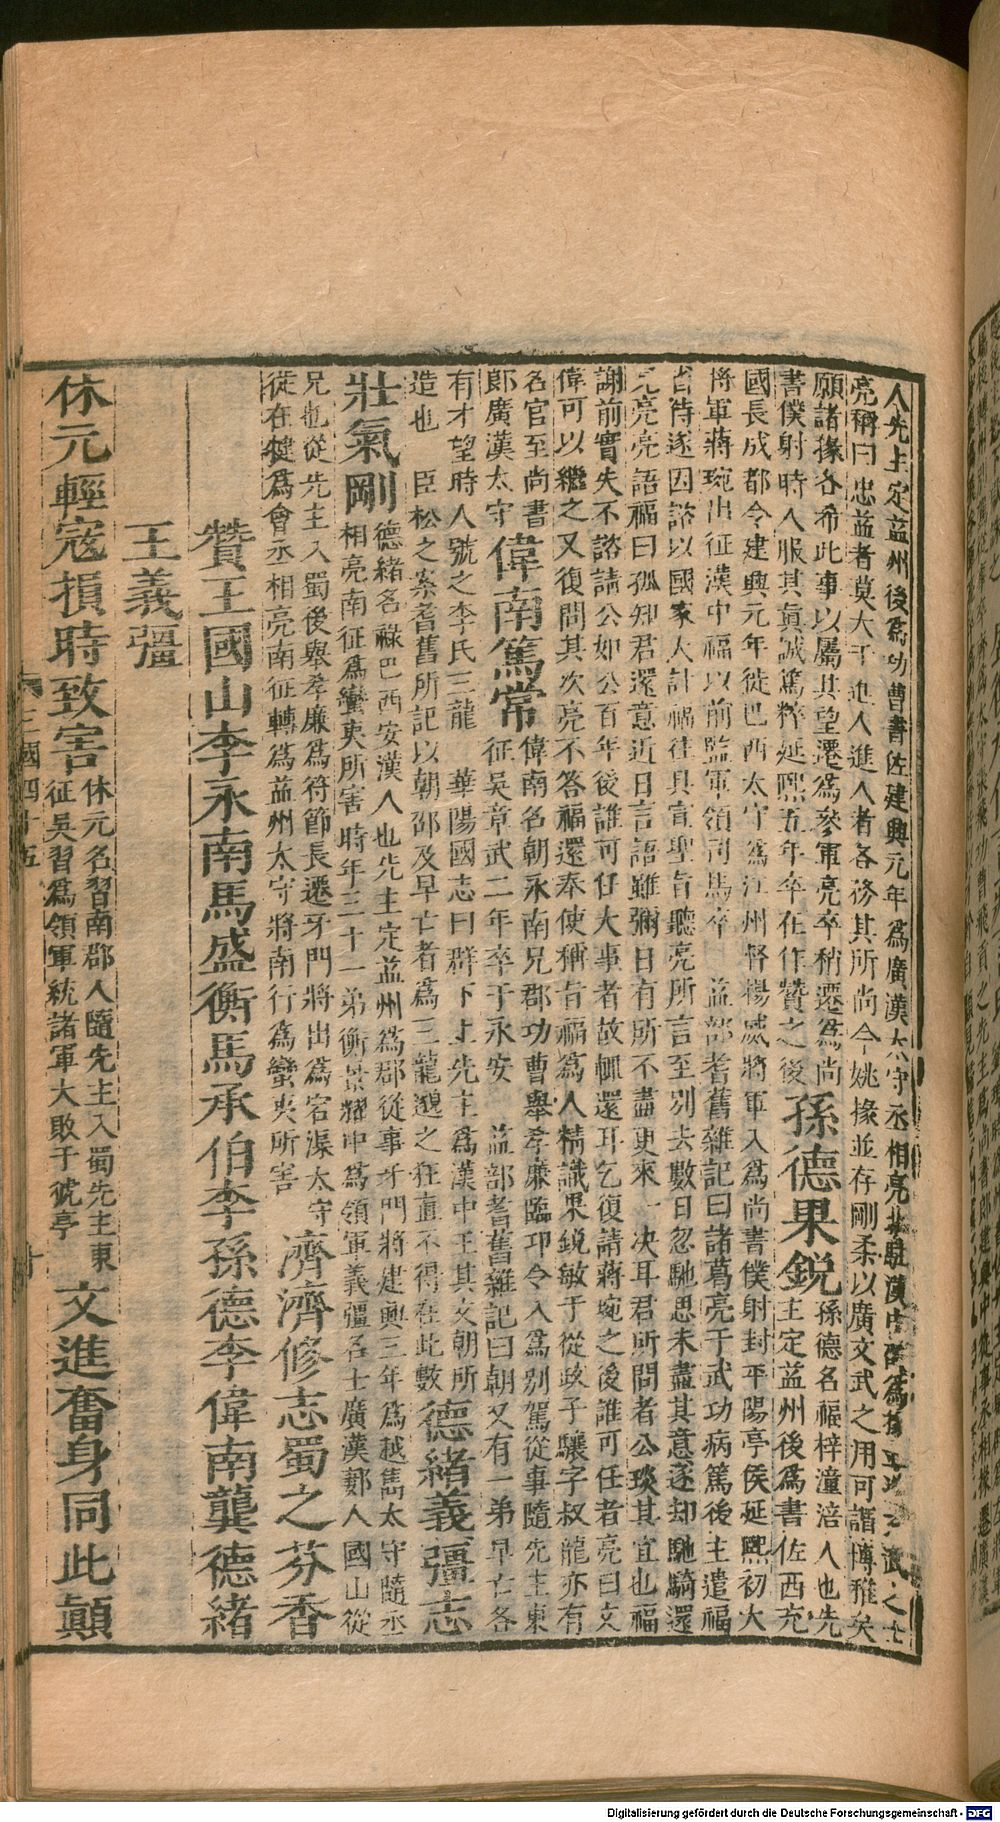 人先主定益州後爲功曹書佐建興元年爲廣漢太守丞相亮北駐漢中辟爲掾文武之士
亮稱曰忠益者莫大于進人進人者各務其所尚今姚掾並存剛柔以廣文武之用可謂博雅矣
願諸掾各希此事以屬其望遷爲參軍亮卒稍遷爲尚
書僕射時人服其眞誠篤粹延熙五年卒在作贊之後
孫德果銳
孫德名福梓潼涪人也先
主定益州後爲書佐西充
國長成都令建興元年徙巴西太守爲江州督楊威將軍入爲尚書僕射封平陽亭侯延熙初大
將軍蔣琬出征漢中福以前監軍領司馬卒 益部耆舊雜記曰諸葛亮于武功病篤後主遣福
省侍遂因諮以國家大計福往具宣聖旨聽亮所言至別去數日忽馳思未盡其意遂却馳騎還
見亮亮語福曰孤知君還意近日言語雖彌日有所不盡更來一決耳君所問者公琰其宜也福
謝前實失不諮請公如公百年後誰可任大事者故輒還耳乞復請蔣琬之後誰可任者亮曰文
偉可以繼之又復問其次亮不答福還奉使稱旨福爲人精識果銳敏于從政子驤字叔龍亦有
名官至尚書
郎廣漢太守
偉南篤常
偉南名朝永南兄郡功曹舉孝廉臨邛令入爲別駕從事隨先主東
征吳章武二年卒于永安 益部耆舊雜記曰朝又有一弟早亡各
有才望時人號之李氏三龍 華陽國志曰群下上先主爲漢中王其文朝所
造也 臣松之案耆舊所記以朝邵及早亡者爲三龍邈之狂直不得在此數
德緒義彊志
壯氣剛
德緒名祿巴西安漢人也先主定益州爲郡從事牙門將建興三年爲越嶲太守隨丞
相亮南征爲蠻夷所害時年三十一弟衡景耀中爲領軍義彊名士廣漢郪人國山從
兄也從先主入蜀後舉孝廉爲符節長遷牙門將出爲宕渠太守
徙在犍爲會丞相亮南征轉爲益州太守將南行爲蠻夷所害
濟濟修志蜀之芬香
贊王國山李永南馬盛衡馬承伯李孫德李偉南龔德緒
王義彊
休元輕寇損時致害
休元名習南郡人隨先主入蜀先主東
征吳習爲領軍統諸軍大敗于猇亭
文進奮身同此顛
三國四十五
十
Digitalisierung gefördert durch die Deutsche Forschungsgemeinschaft - DFG